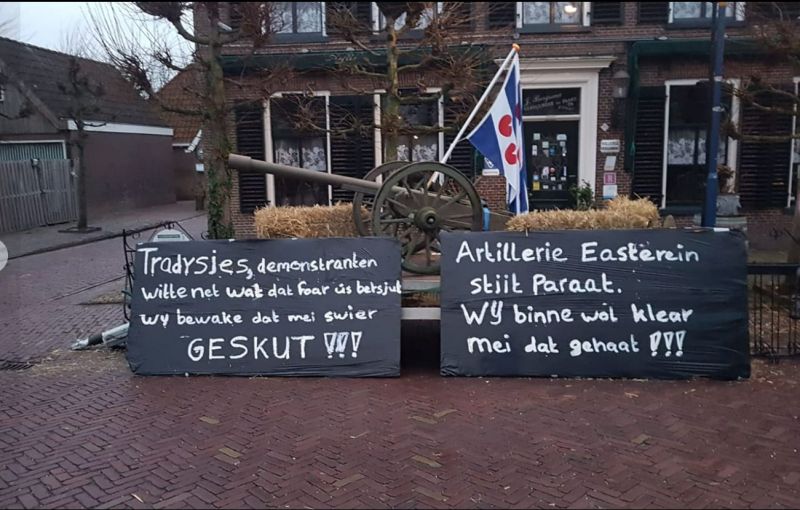 Tradysjes, demonstranten
witte net wat dat foar ús betsjut
wy bewake dat mei swier
GESKUT !!!
Artillerie Easterein
stiit Paraat.
Wy binne wol klear
mei dat gehaat !!!